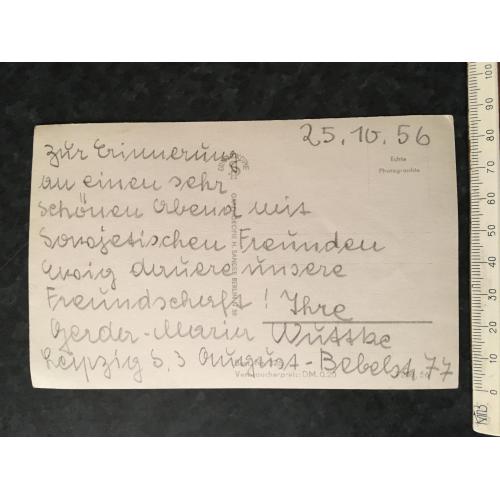 25.10.56
Zur Erinnerung
an einen sehr
schönen Abend mit
Sowjetischen Freunden
Ewig dauere unsere
Freundschaft! Ihre
Gerda-Maria Wuttke
Leipzig S.3 August-Bebelst. 77
Echte
Photographie
H. SANDER BERLIN
Verbraucherpreis: DM. 0.25
10
20
30
40
50
60
70
80
90
100